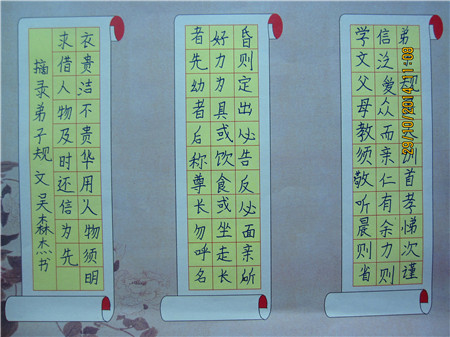 弟规例首孝悌次谨
信泛爱众而亲仁有余力则
学文父母教须敬听晨则省
昏则定出必告反必面亲所
好力为具或饮食或坐走长
者先幼者后称尊长勿呼名
衣贵洁不贵华用人物须明
求借人物及时还信为先
摘录弟子规文吴森杰书